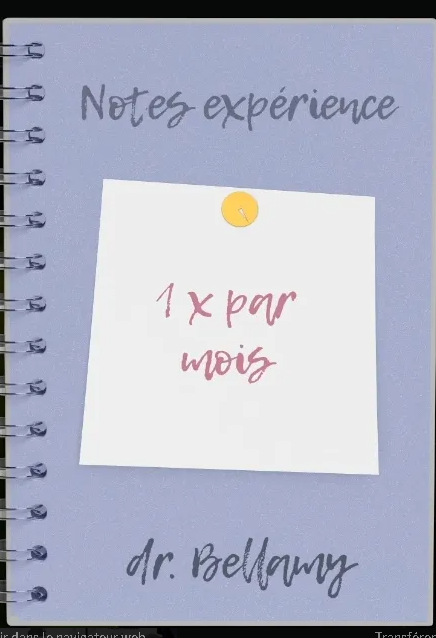 Notes expérience
1 x par
mois
dr. Bellamy
ir dans le navigateur web